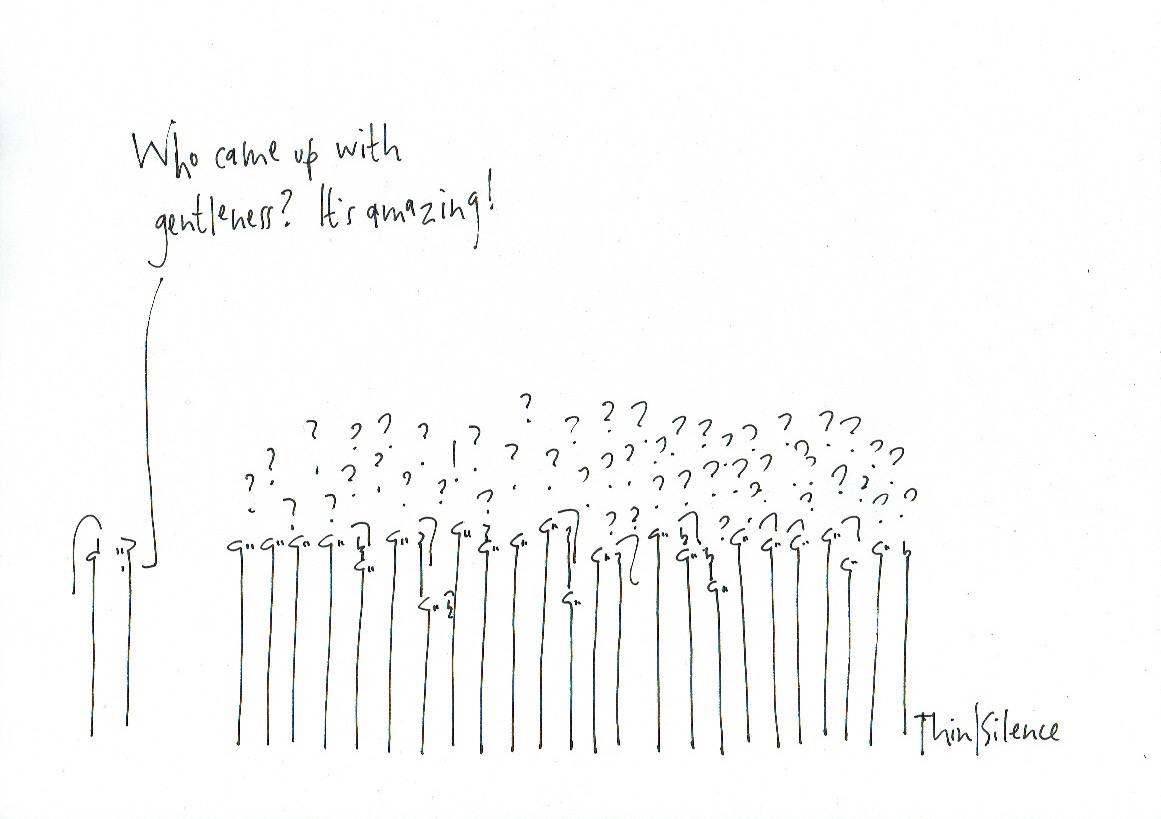 Who came up with
gentleness? It's amazing!
Thin|Silence